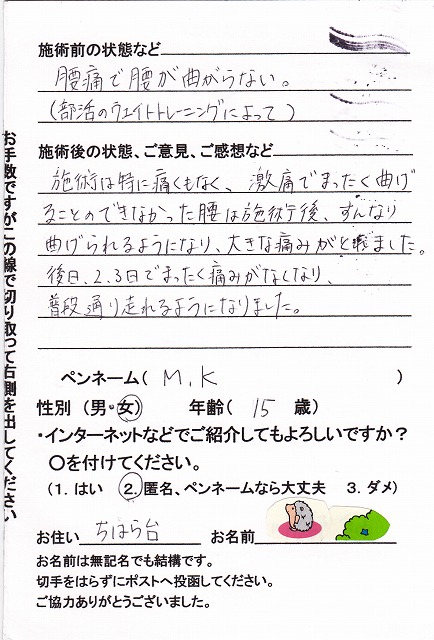 施術前の状態など
腰痛で腰が曲がらない。
(部活のウェイトトレーニングによって)
施術後の状態、ご意見、ご感想など
施術は特に痛くもなく、激痛でまったく曲げ
ることのできなかった腰は施術後、すんなり
曲げられるようになり、大きな痛みがとれました。
後日、2、3日でまったく痛みがなくなり、
普段通り走れるようになりました。
ペンネーム( M.K )
性別 (男・女) 年齢( 15 歳)
・インターネットなどでご紹介してもよろしいですか?
〇を付けてください。
(1. はい 2. 匿名、ペンネームなら大丈夫 3. ダメ)
お住い ちはら台 お名前
お名前は無記名でも結構です。
切手をはらずにポストへ投函してください。
ご協力ありがとうございました。
お手数ですがこの線で切り取って右側を出してください